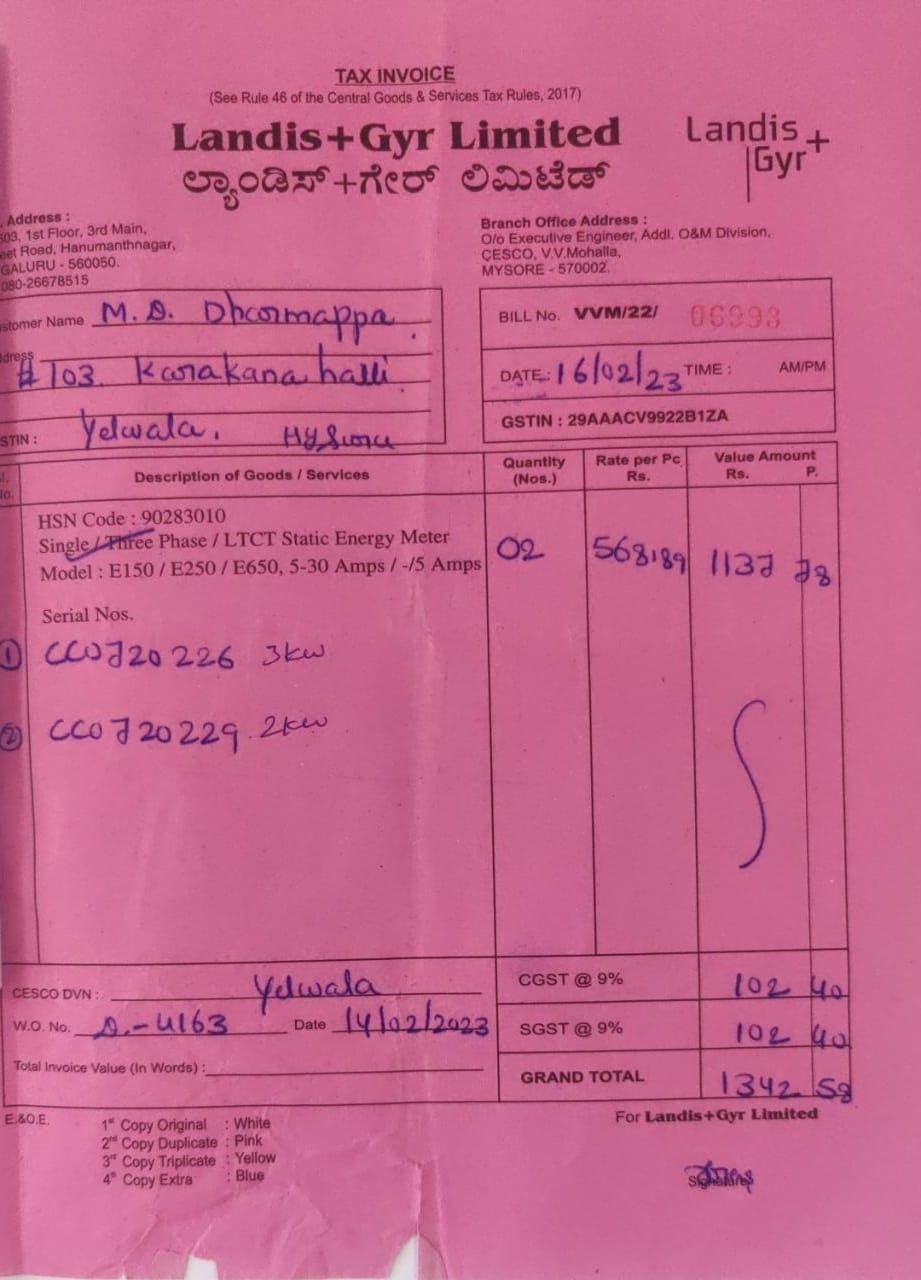 TAX INVOICE
(See Rule 46 of the Central Goods & Services Tax Rules, 2017)
Landis+Gyr Limited
ಲ್ಯಾಂಡಿಸ್+ಗೇರ್ ಲಿಮಿಟೆಡ್
Landis
Gyr+
Address :
503, 1st Floor, 3rd Main,
eet Road, Hanumanthnagar,
GALURU - 560050.
080-26678515
Branch Office Address :
O/o Executive Engineer, Addl. O&M Division,
CESCO, V.V.Mohalla,
MYSORE - 570002.
stomer Name M.D. Dharmappa.
dress #103 Karakanahalli
STIN : Yelwala,
BILL No. VVM/22/ 06993
DATE : 16/02/23 TIME : AM/PM
GSTIN : 29AAACV9922B1ZA
No. Description of Goods / Services Quantity (Nos.) Rate per Pc Rs. Value Amount Rs. P.
HSN Code : 90283010
Single / Three Phase / LTCT Static Energy Meter
Model : E150 / E250 / E650, 5-30 Amps / -/5 Amps
02 568.89 1137 78
Serial Nos.
① CC0720226 3kw
② CC0720229 2kw
CESCO DVN : Yelwala
W.O. No. D.-4163 Date 14/02/2023
Total Invoice Value (In Words) :
CGST @ 9% 102 40
SGST @ 9% 102 40
GRAND TOTAL 1342 58
E.&O.E.
1st Copy Original : White
2nd Copy Duplicate : Pink
3rd Copy Triplicate : Yellow
4th Copy Extra : Blue
For Landis+Gyr Limited
Signature